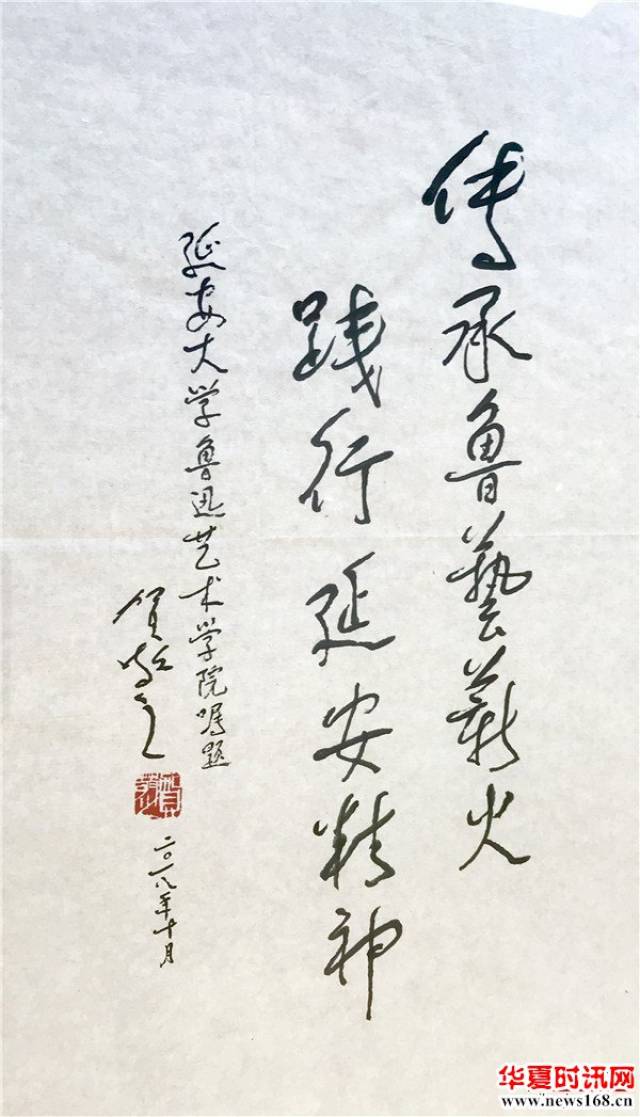 傳承魯藝薪火
践行延安精神
延安大学鲁迅艺术学院嘱题
贺敬之
二〇一八年十月
华夏时讯网
www.news168.cn